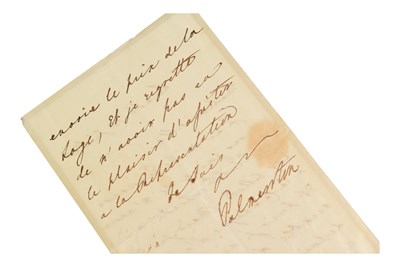 envoie le prix de la
Loge, Et je regrette
de n'avoir pas eu
le plaisir d'assister
a la Représentation
Je Suis
Palmerston